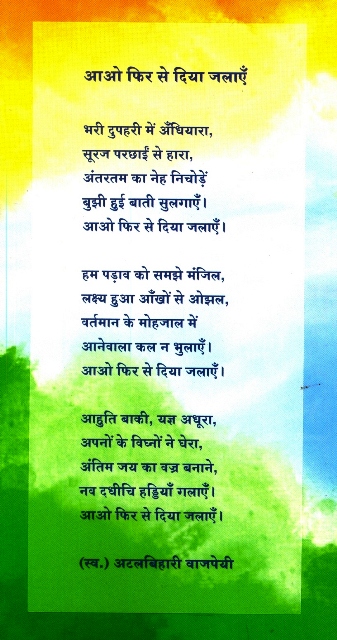 आओ फिर से दिया जलाएँ
भरी दुपहरी में अँधियारा,
सूरज परछाईं से हारा,
अंतरतम का नेह निचोड़ें
बुझी हुई बाती सुलगाएँ।
आओ फिर से दिया जलाएँ।
हम पड़ाव को समझे मंजिल,
लक्ष्य हुआ आँखों से ओझल,
वर्तमान के मोहजाल में
आनेवाला कल न भुलाएँ।
आओ फिर से दिया जलाएँ।
आहुति बाकी, यज्ञ अधूरा,
अपनों के विघ्नों ने घेरा,
अंतिम जय का वज्र बनाने,
नव दधीचि हड्डियाँ गलाएँ।
आओ फिर से दिया जलाएँ।
(स्व.) अटलबिहारी वाजपेयी